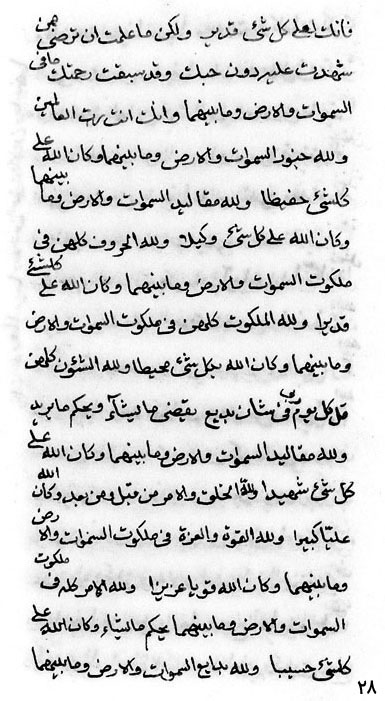 فانك لعلى كل شئ قدير ولكن ما علمت ان ترضى عمن
شهدت عليه دون حبك وقد سبقت رحمتك ما فى
السموات والارض وما بينهما وانك انت رب العالمين
ولله جنود السموات والارض وما بينهما وكان الله على
كلشئ حفيظا ولله مقاليد السموات والارض وما بينهما
وكان الله على كل شئ وكيلا ولله الحروف كلهن فى
ملكوت السموات والارض وما بينهما وكان الله على كلشئ
قديرا ولله الملكوت كلهن فى ملكوت السموات والارض
وما بينهما وكان الله بكل شئ محيطا ولله الشئون كلهن
قل كل يوم فى شان بديع يقضى ما يشآء ويحكم ما يريد
ولله مقاليد السموات والارض وما بينهما وكان الله على
كل شئ شهيدا ولله الخلق والامر من قبل ومن بعد وكان الله
عليا كبيرا ولله القوة والعزة فى ملكوت السموات والارض
وما بينهما وكان الله قويا عزيزا ولله الامر كله فى ملكوت
السموات والارض وما بينهما يحكم ما يشاء وكان الله على
كلشئ حسيبا ولله بدايع السموات والارض وما بينهما
٢٨